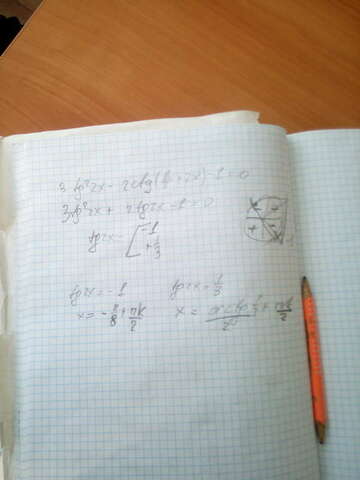 3 tg²2x - 2ctg(π/2 + 2x) - 1 = 0
3tg²2x + 2tg2x - 1 = 0
tg2x = [ -1
+1/3
tg2x = -1 tg2x = 1/3
x = -π/8 + πk/2 x = arctg 1/3 / 2 + πk/2